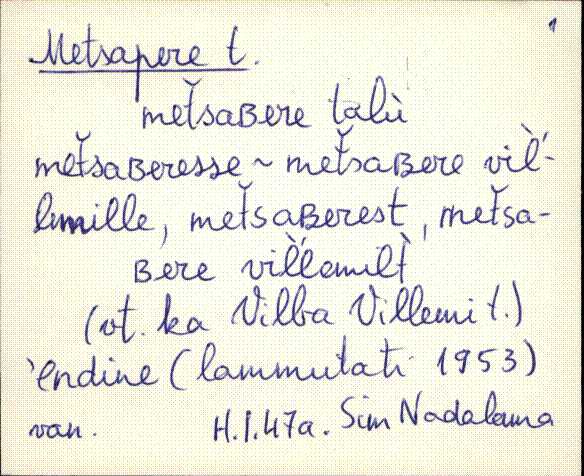 1
Metsapere t.
met̆saʙere talù
met̆saʙeresse ~ met̆saʙere vil̀'-
lemille, met̆saʙerest, met̆sa-
ʙere vil̀'lemilt̀
(vt. ka Vilba Villemi t.)
'endine (lammutati 1953)
van. H.I.47a. Siim Nadalama